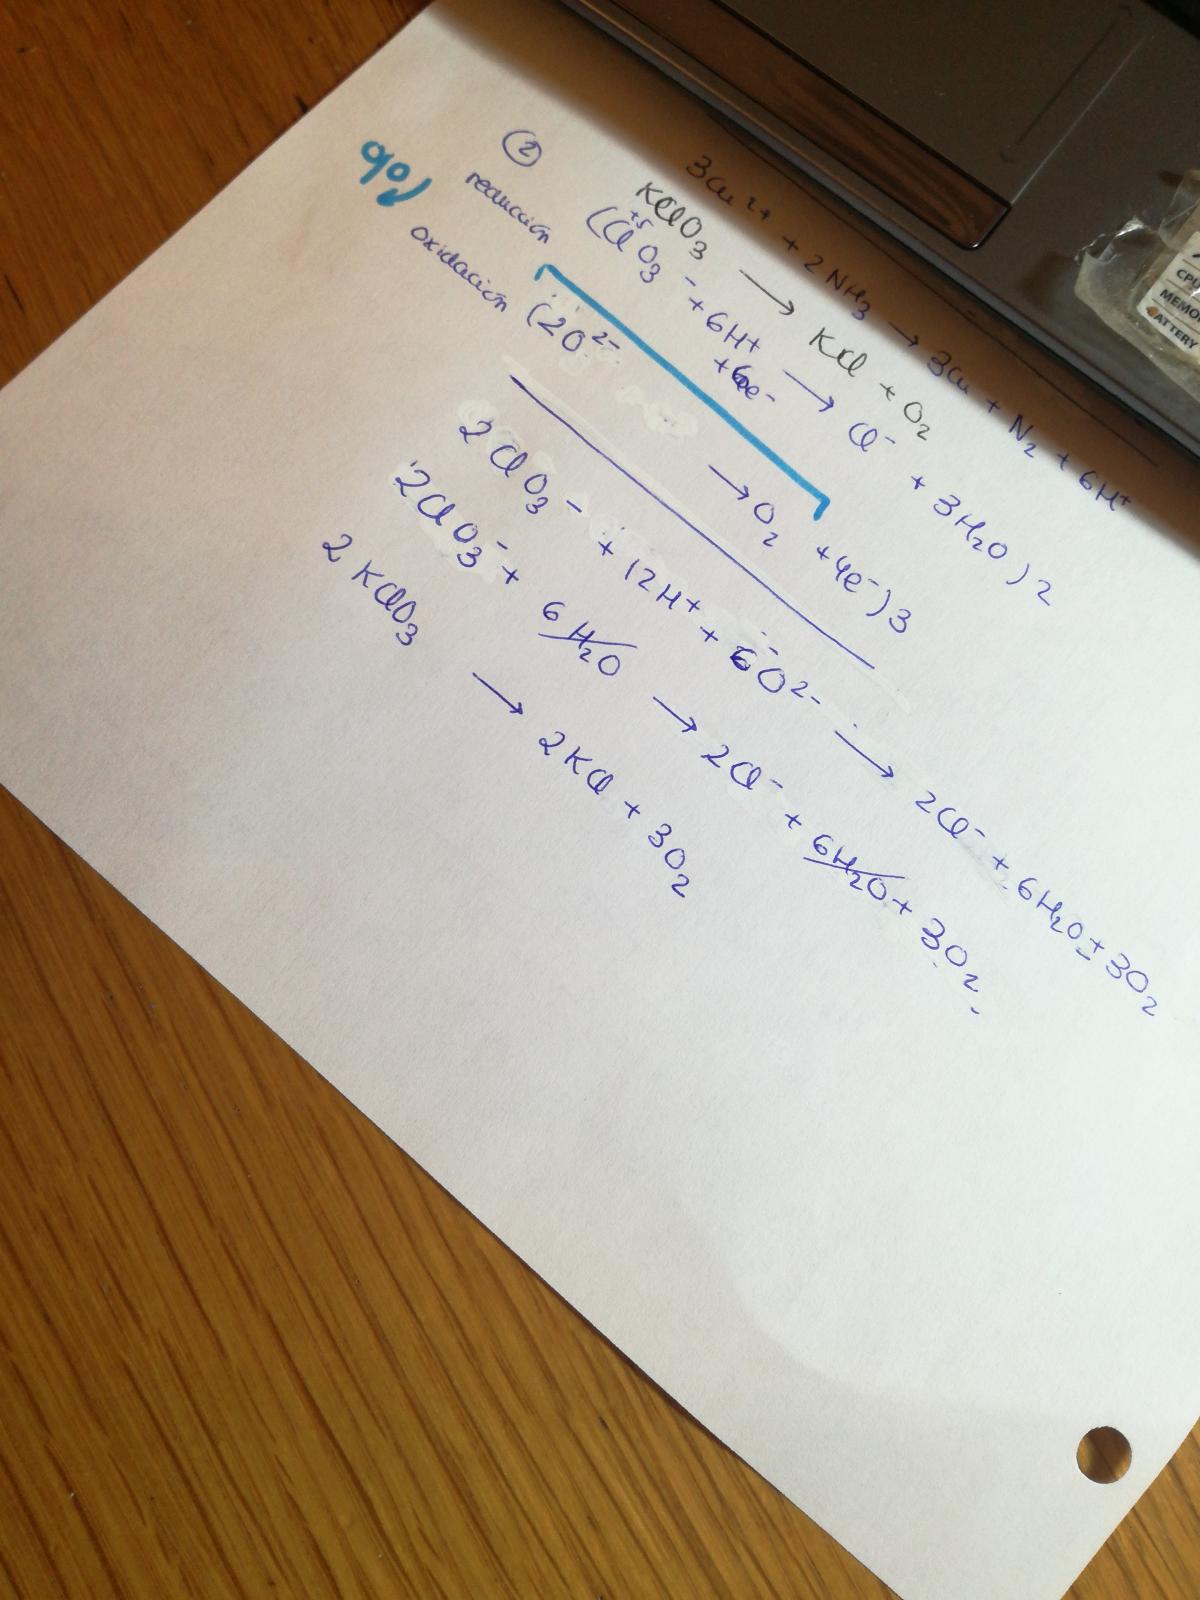 3Cu²⁺ + 2NH₃ → 3Cu + N₂ + 6H⁺
②
KClO₃ → KCl + O₂
reducción (ClO₃⁻ + 6H⁺ + 6e⁻ → Cl⁻ + 3H₂O) 2
+5
oxidación (2O²⁻ → O₂ + 4e⁻) 3
2ClO₃⁻ + 12H⁺ + 6O²⁻ → 2Cl⁻ + 6H₂O + 3O₂
2ClO₃⁻ + 6H₂O → 2Cl⁻ + 6H₂O + 3O₂
2KClO₃ → 2KCl + 3O₂
CPU
MEMO
BATTERY